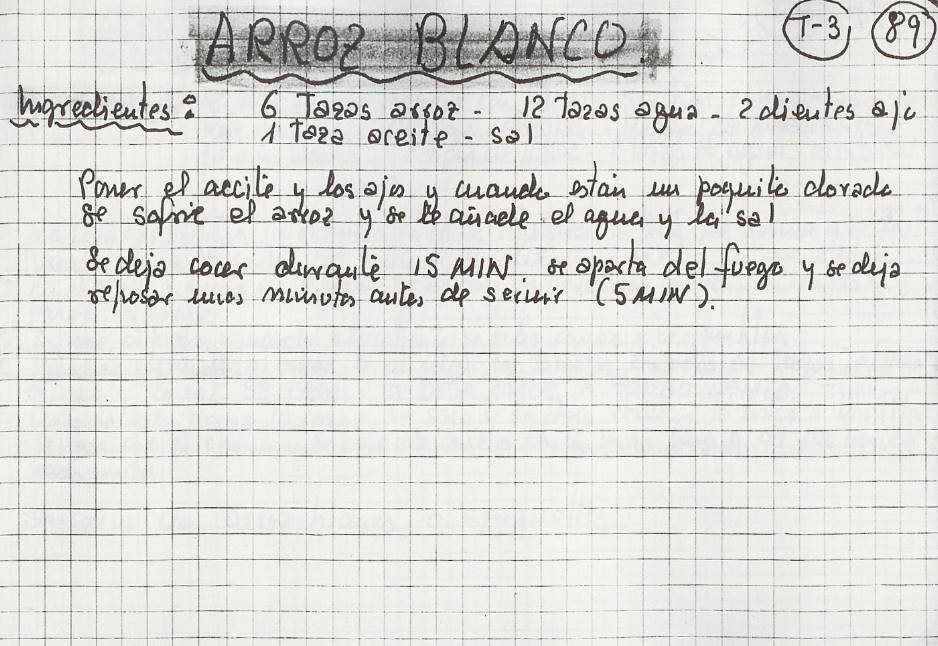 ARROZ BLANCO.
T-3
89
Ingredientes: 6 Tazas arroz - 12 Tazas agua - 2 dientes ajo
1 Taza aceite - sal
Poner el aceite y los ajos y cuando están un poquito dorado
se sofrie el arroz y se le añade el agua y la sal
Se deja cocer durante 15 MIN. se aparta del fuego y se deja
reposar unos minutos antes de servir (5 MIN).